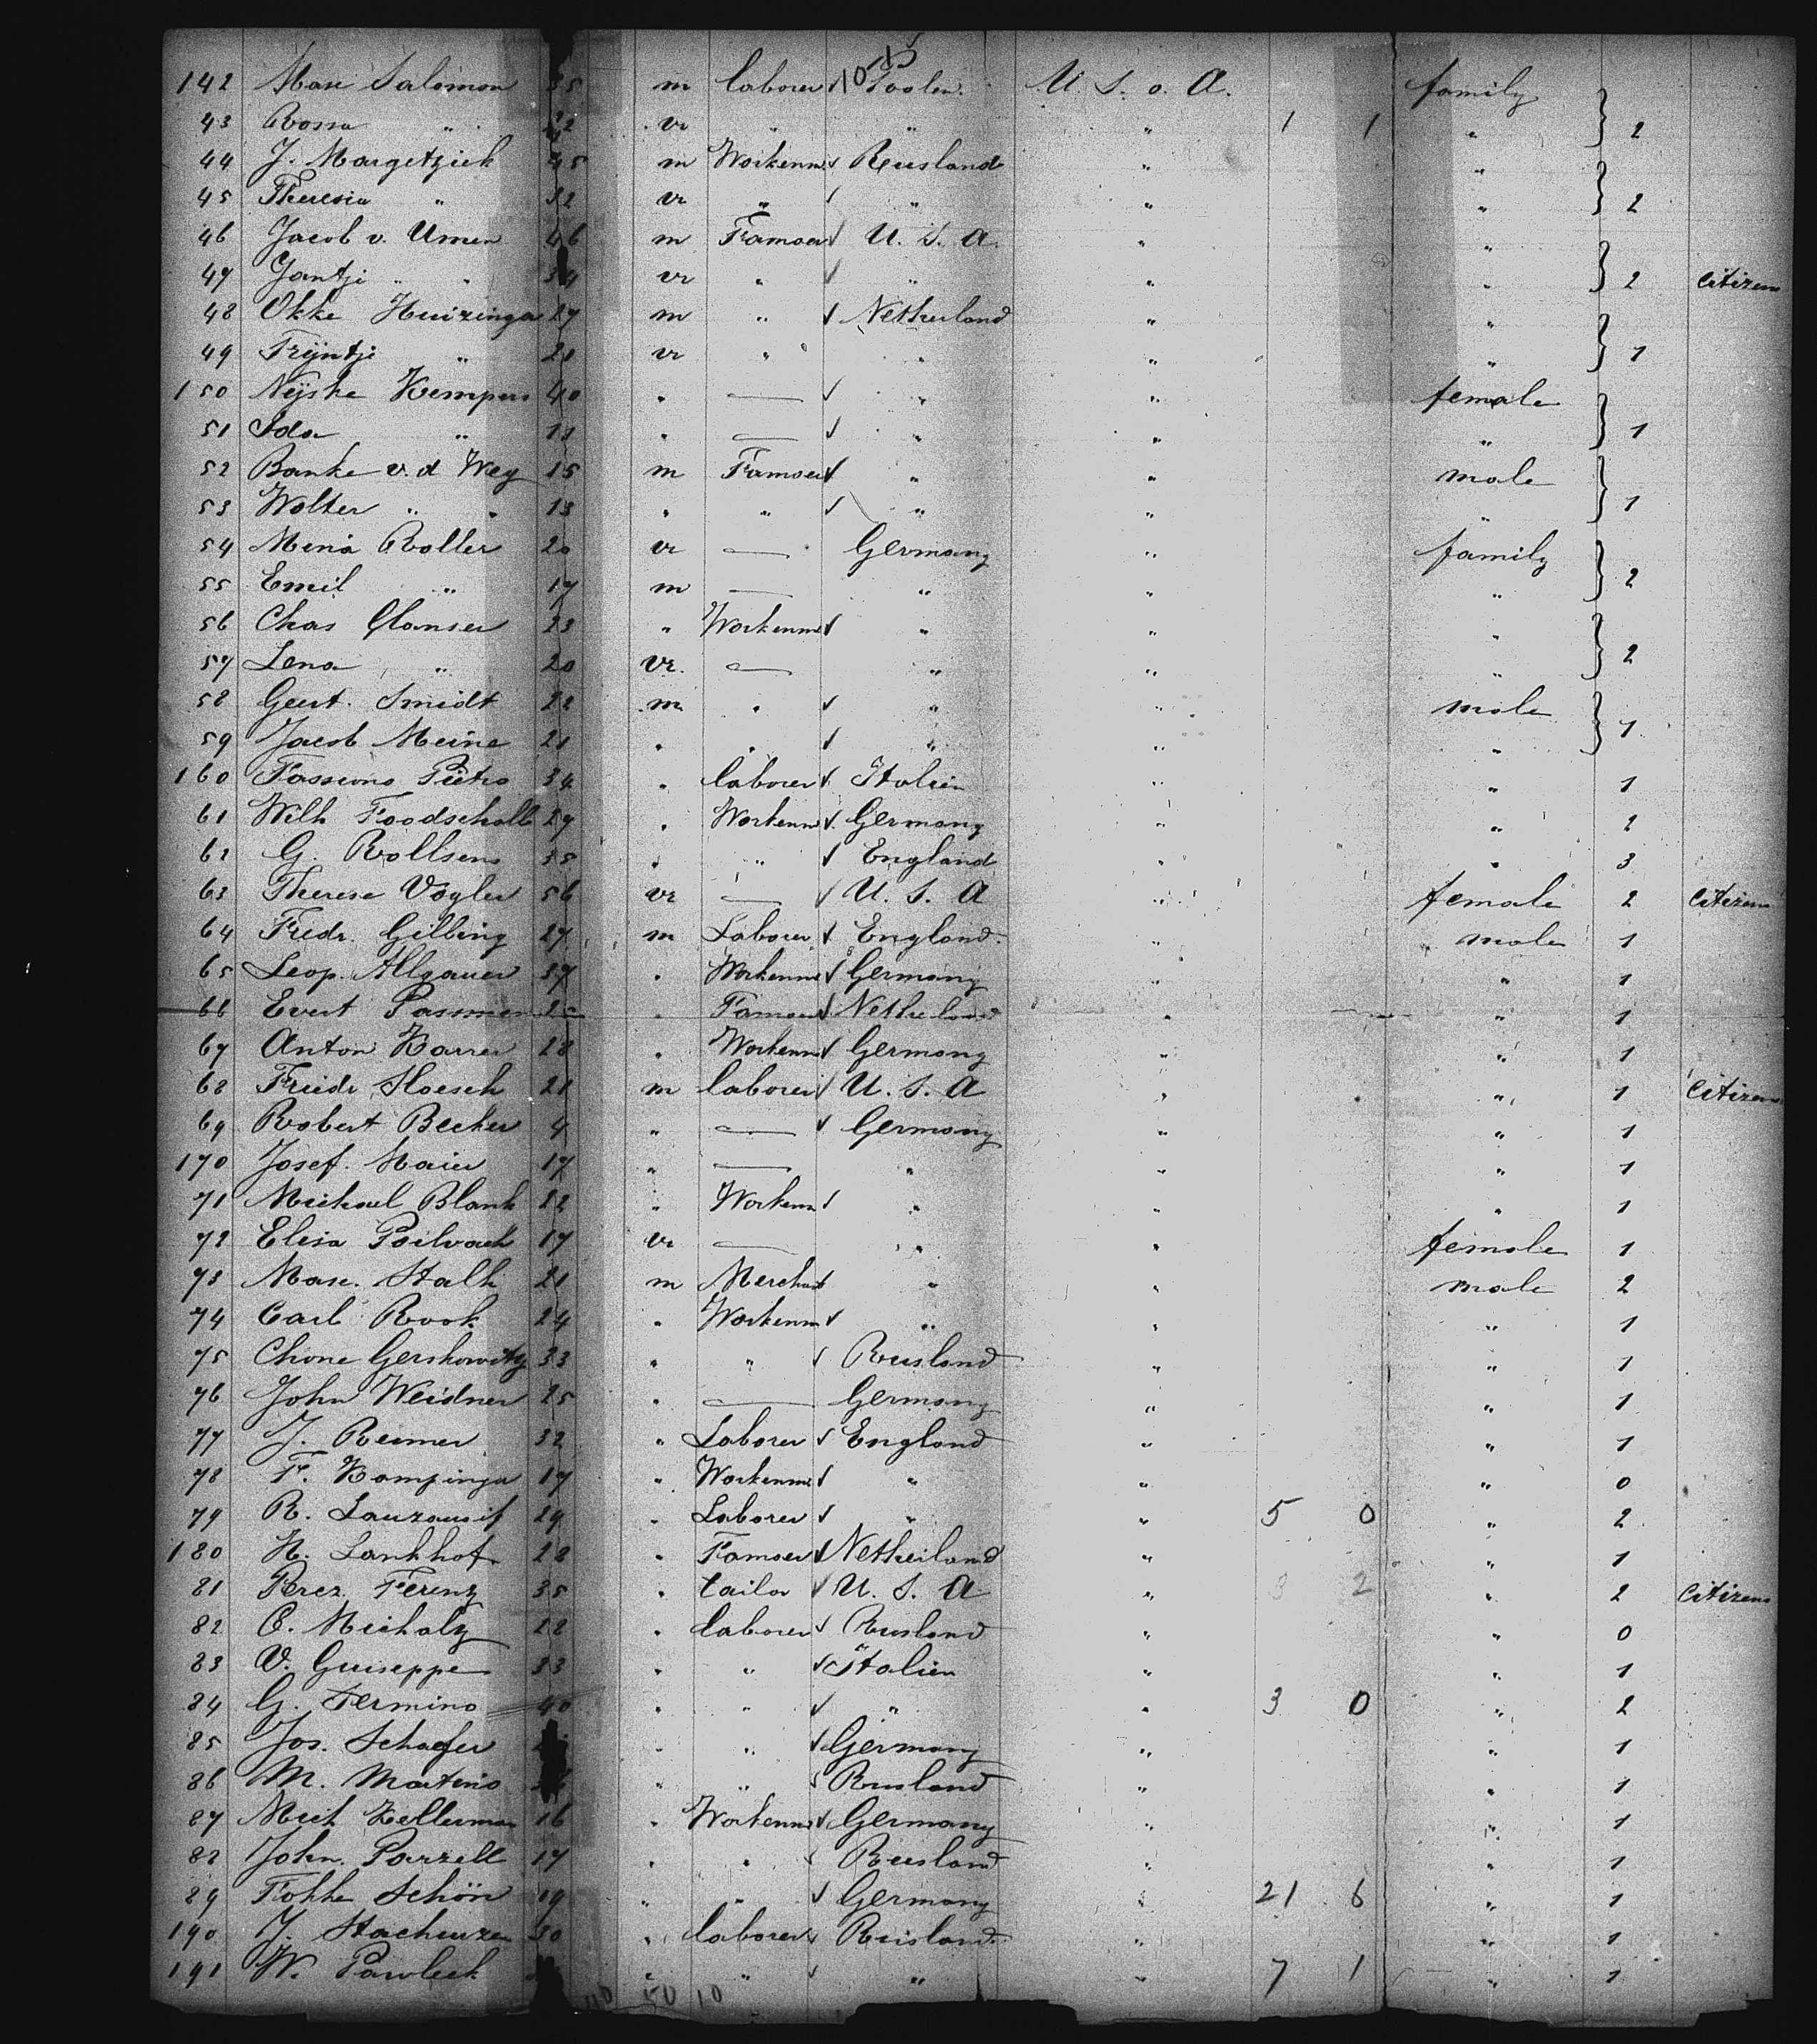 10
142 Max Salomon 35 m laborer Poolen. U. S. o. A. family
43 Rossa " 22 vr " " " 1 1 " 2
44 J. Margetziek 45 m Workenm Rusland " "
45 Theresia " 32 vr " " " " 2
46 Jacob v. Umen 46 m Famoer U. S. A. " "
47 Jantje " " 34 vr " " " " 2 Citizens
48 Okke Huizinga 27 m " Netherland " "
49 Trijntje " 21 vr " " " " 1
150 Nijske Kempers 40 " — " " female
51 Ida " 11 " — " " " 1
52 Banke v. d Wey 15 m Famoer " " male
53 Wolter " " 13 " " " " " 1
54 Mena Roller 20 vr — Germany " family
55 Emil " 17 m — " " " 2
56 Chas Glanser 23 " Workenm " " "
57 Lena " 20 vr. — " " " 2
58 Geert. Smidt 22 m " " " male
59 Jacob Meine 21 " " " " " 1
160 Fassions Pietro 34 " laborer Italien " " 1
61 Wilh Foodschalk 27 " Workenm Germany " " 2
62 G. Rollsens 35 " " England " " 3
63 Therese Vogler 56 vr — U. S. A " female 2 Citizens
64 Fredr. Gilbing 27 m Laborer England. " male 1
65 Leop. Allgauer 37 " Workenm Germany " " 1
66 Evert Passmer " Famoer Netherland " " 1
67 Anton Karrer 28 " Workenm Germany " " 1
68 Friedr Hoesch 21 m laborer U. S. A " " 1 Citizens
69 Robert Becker 9 " — Germany " " 1
170 Josef. Maier 17 " — " " " 1
71 Michael Blank 22 " Workenm " " " 1
72 Elisa Poilvach 17 vr — " " female 1
73 Max. Stalk 21 m Merchant " " male 2
74 Carl Rook 24 " Workenm " " " 1
75 Chone Gershowitz 33 " " Rusland " " 1
76 John Weidner 25 " — Germany " " 1
77 J. Reimer 32 " Laborer England " " 1
78 F. Kampinga 17 " Workenm " " " 0
79 R. 29 " Laborer " " 5 0 " 2
180 H. Lankhof 28 " Famoer Netherland " " 1
81 Perez Ferenz 35 " tailor U. S. A " 3 2 " 2 Citizens
82 O. Micholz 22 " laborer Rusland " " 0
83 V. Guiseppe 33 " " Italien " " 1
84 G. Fermino 40 " " " " 3 0 " 2
85 Jos. Schaefer " " Germany " " 1
86 M. Martino " " Rusland " " 1
87 Mich Kellerman 16 " Workenm Germany " " 1
88 John. Parzell 17 " " Rusland " " 1
89 Fokke Schön 19 " " Germany " 21 6 " 1
190 J. 30 " laborer Rusland " " 1
191 W. Pawleck " " " " 7 1 " 1
50 10